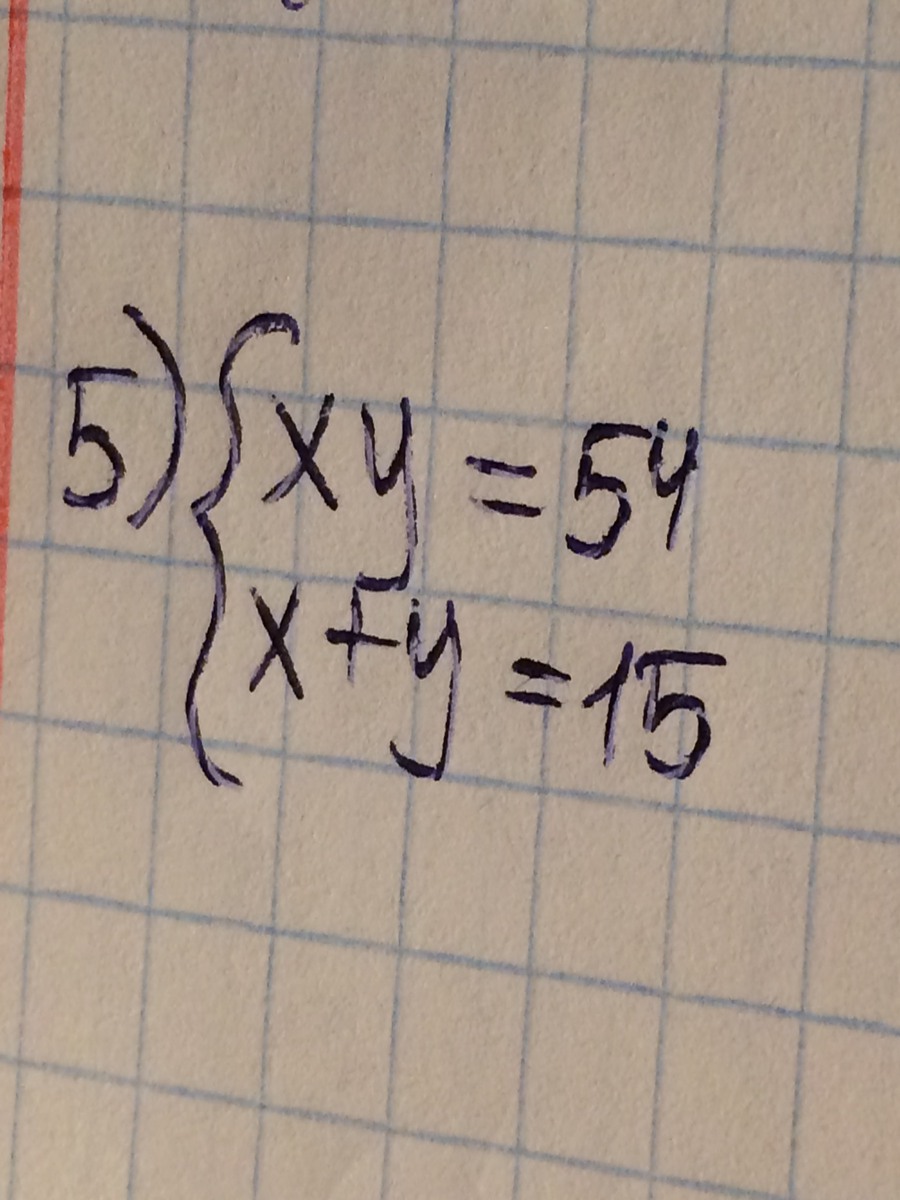 5) { xy = 54
x+y = 15